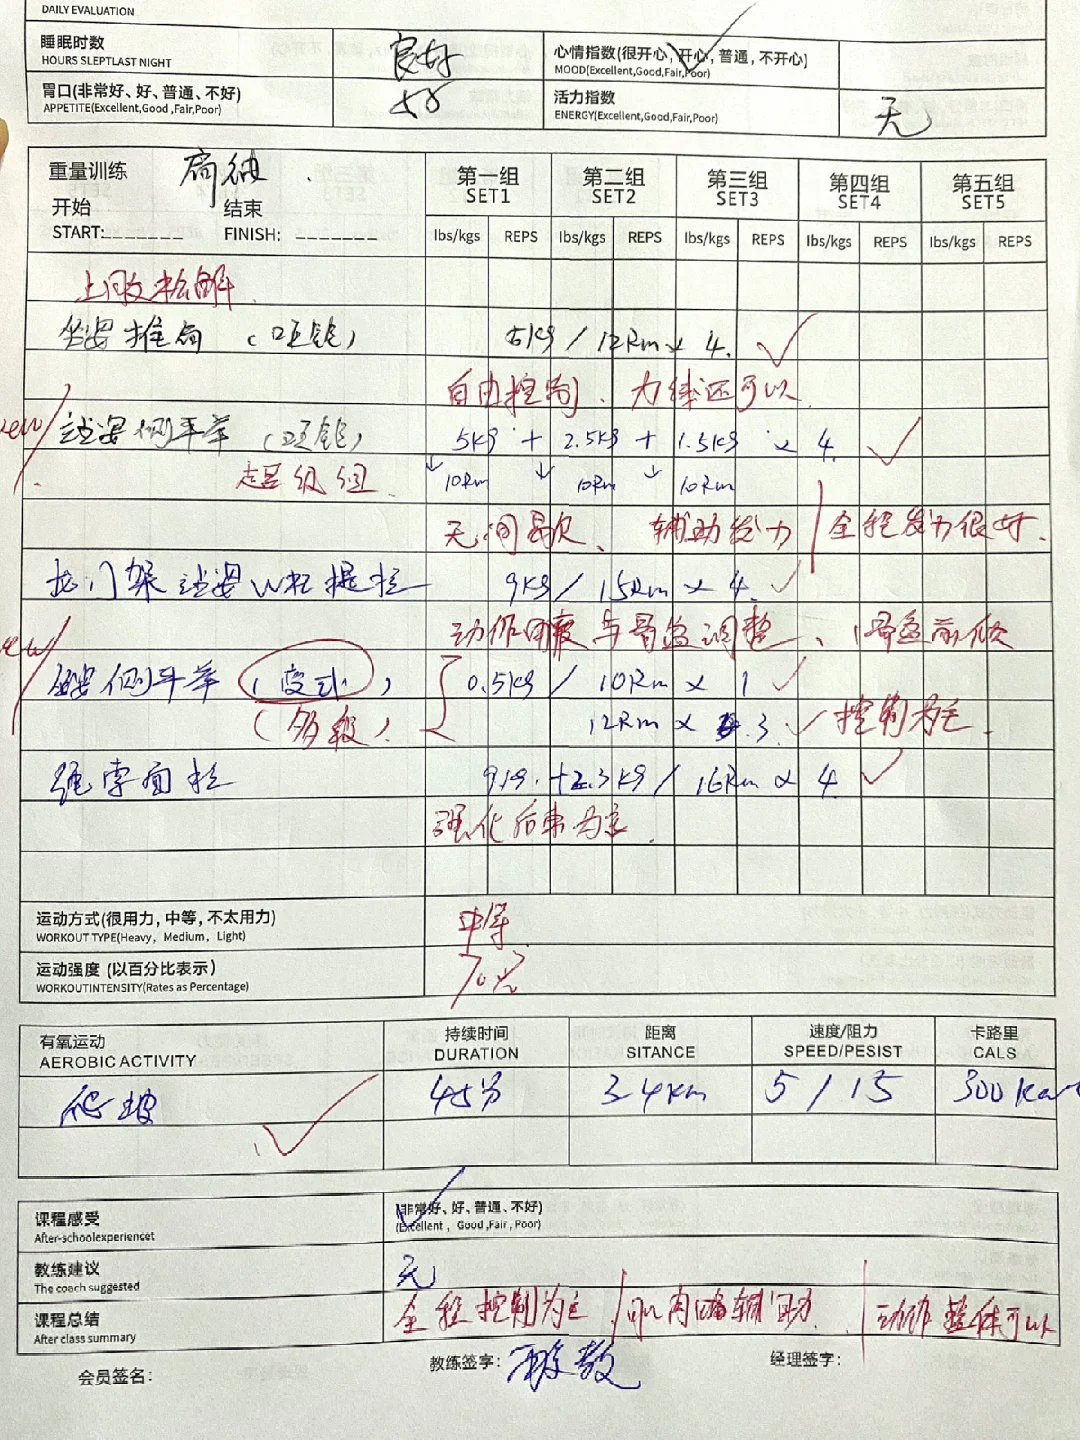 DAILY EVALUATION
睡眠时数
HOURS SLEPTLAST NIGHT
良好
心情指数(很开心,开心,普通,不开心)
MOOD(Excellent,Good,Fair,Poor)
胃口(非常好、好、普通、不好)
APPETITE(Excellent,Good,Fair,Poor)
好
活力指数
ENERGY(Excellent,Good,Fair,Poor)
无
重量训练
开始 结束
START: FINISH:
第一组 第二组 第三组 第四组 第五组
SET1 SET2 SET3 SET4 SET5
lbs/kgs REPS lbs/kgs REPS lbs/kgs REPS lbs/kgs REPS lbs/kgs REPS
上肢松解
坐姿推肩(哑铃) 5kg / 12Rm x 4.
自由推肩、力线还可以
new
站姿侧平举(哑铃) 5kg + 2.5kg + 1.5kg x 4.
超级组 10Rm 10Rm 10Rm
无间歇、辅助发力 / 全程发力很好.
龙门架站姿W杠提拉 9kg / 15Rm x 4.
动作角度与骨盆调整、骨盆前倾
new
坐姿侧平举(变式) 0.5kg / 10Rm x 1
(多级) 12Rm x 3. 控制为主.
绳索面拉 9kg.+2.3kg / 16Rm x 4.
强化后束为主.
运动方式(很用力,中等,不太用力)
WORKOUT TYPE(Heavy, Medium, Light)
中等
运动强度 (以百分比表示)
WORKOUTINTENSITY(Rates as Percentage)
70%
有氧运动 持续时间 距离 速度/阻力 卡路里
AEROBIC ACTIVITY DURATION SITANCE SPEED/PESIST CALS
爬坡 45分 3.4km 5 / 15 300Kcal
课程感受
After-schoolexperiencet
(非常好、好、普通、不好)
(Excellent, Good,Fair,Poor)
教练建议
The coach suggested
无
课程总结
After class summary
全程控制为主 / 辅助. / 动作整体可以
会员签名: 教练签字: 经理签字: